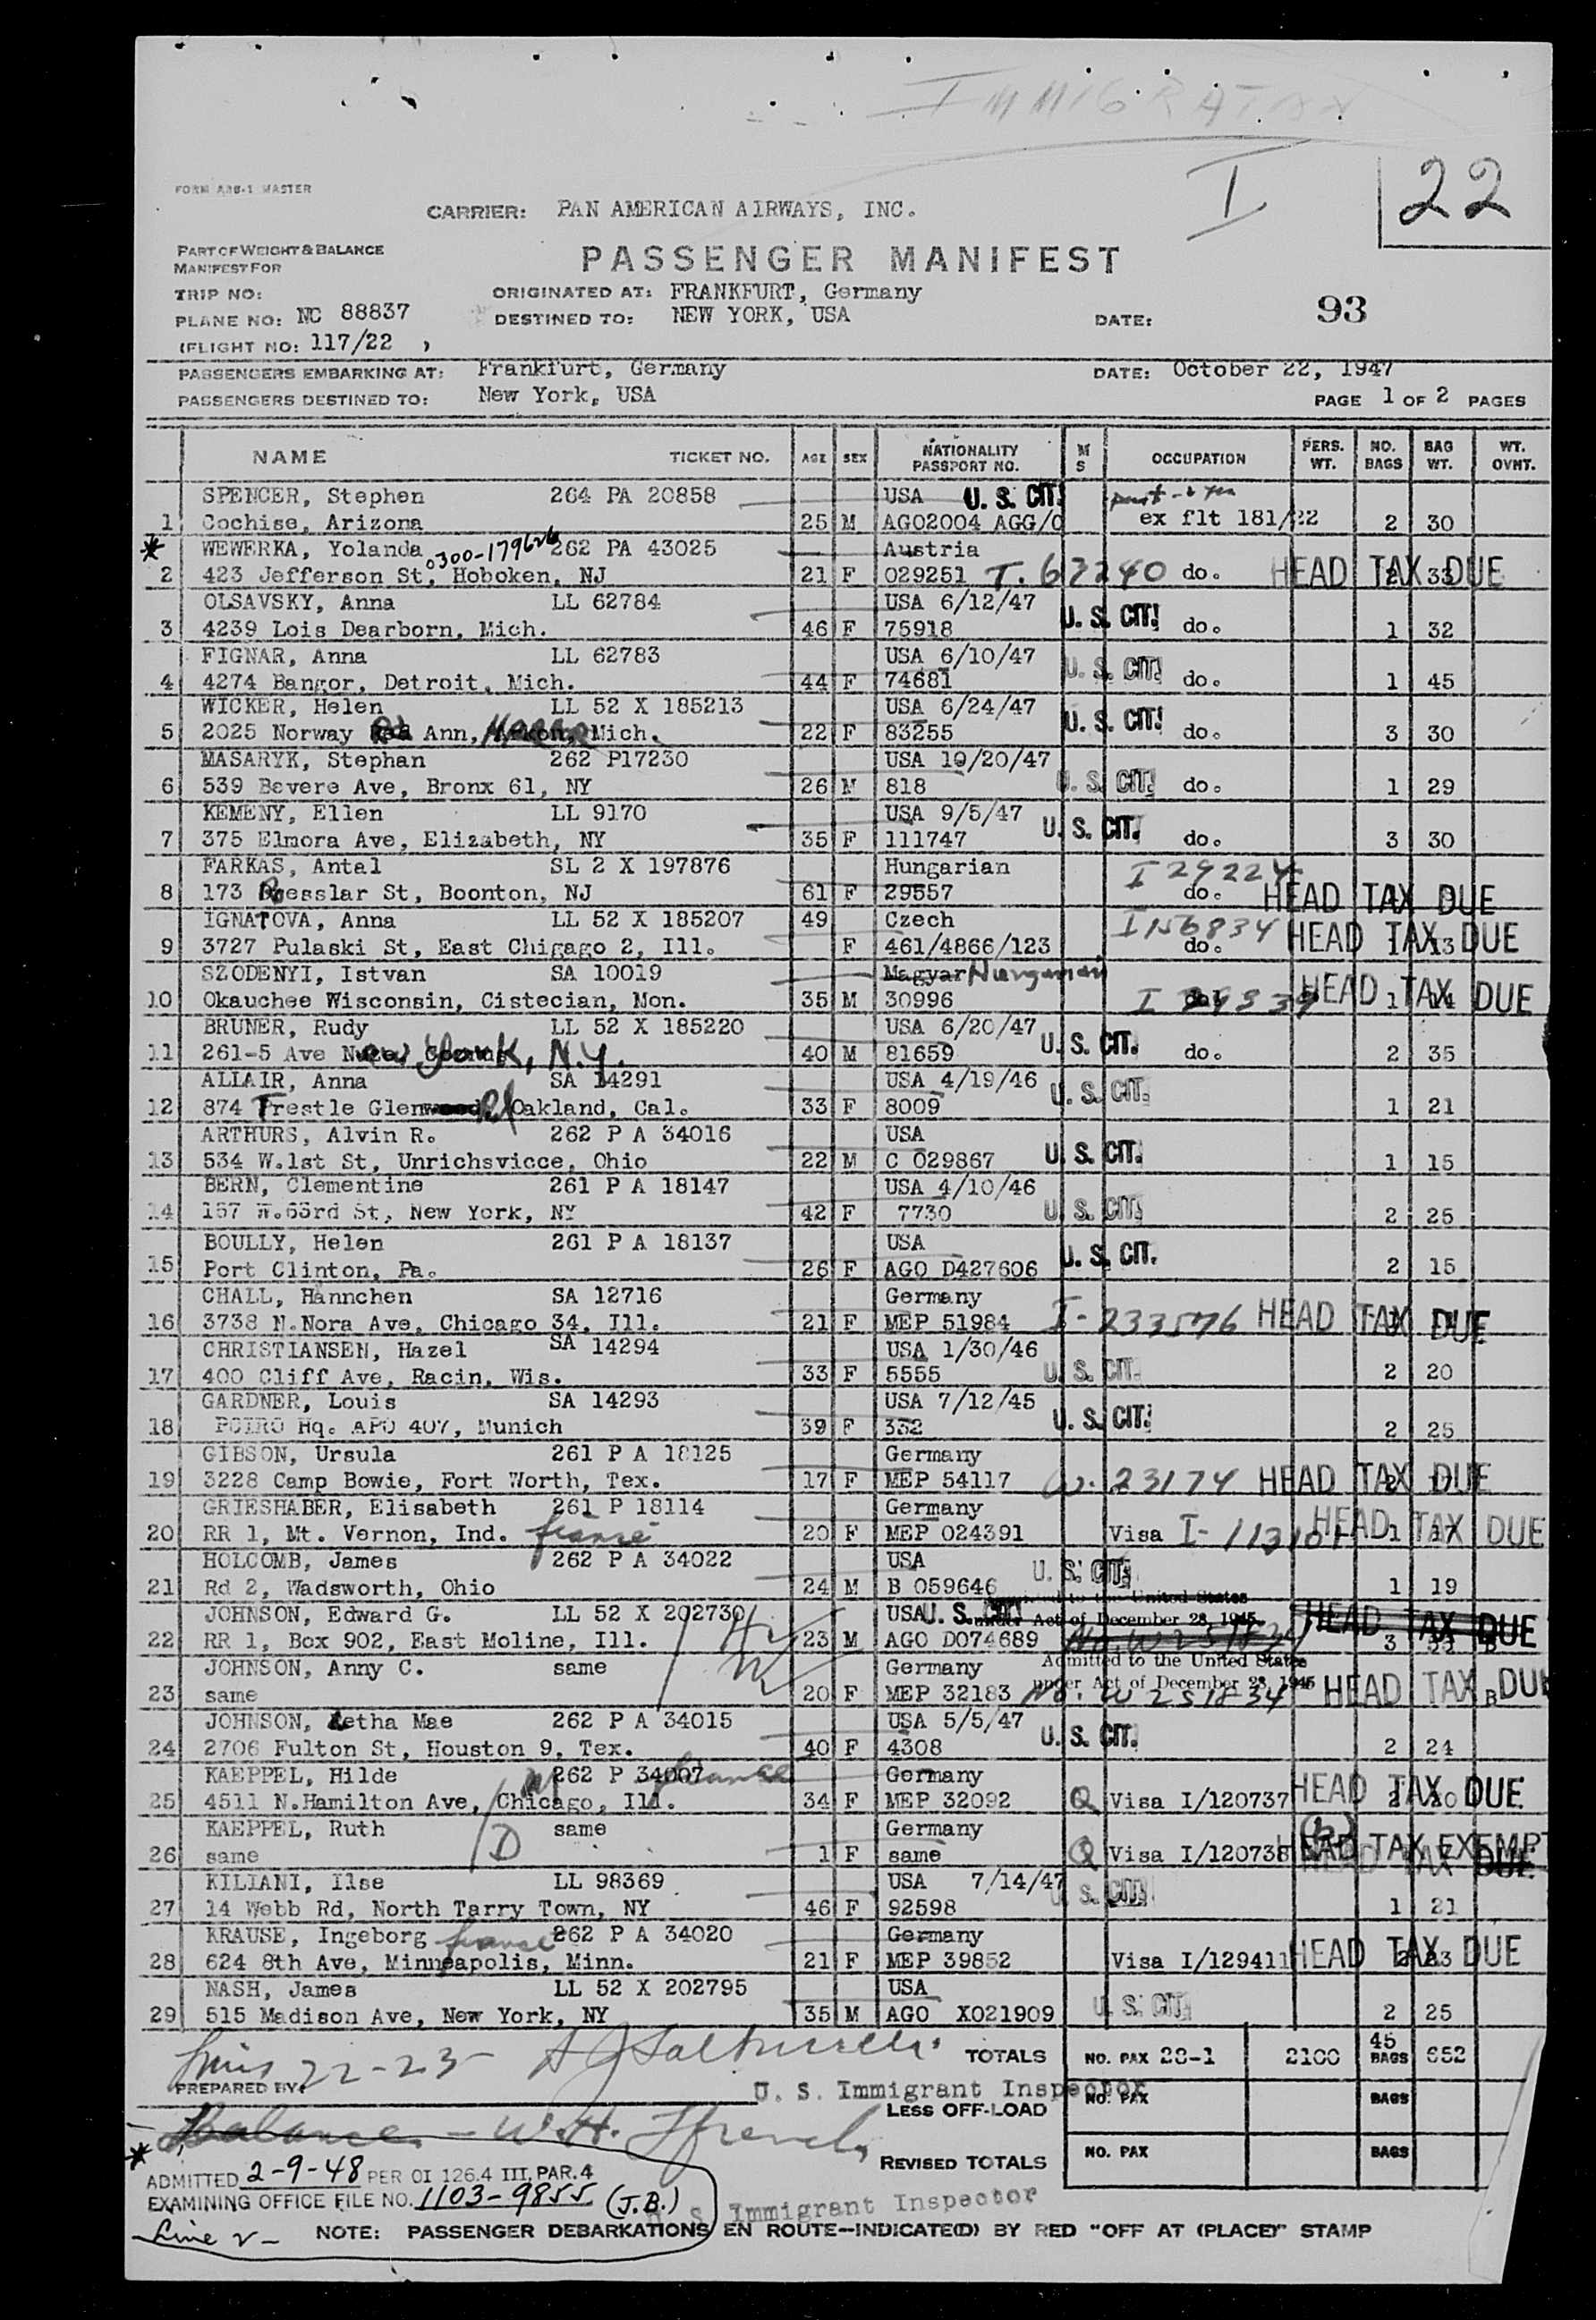 IMMIGRATION
I
22
FORM
MASTER
CARRIER: PAN AMERICAN AIRWAYS, INC.
PART OF WEIGHT & BALANCE
MANIFEST FOR
PASSENGER MANIFEST
TRIP NO:
ORIGINATED AT: FRANKFURT, Germany
PLANE NO: NC 88837
DESTINED TO: NEW YORK, USA
DATE: 93
(FLIGHT NO: 117/22 )
PASSENGERS EMBARKING AT: Frankfurt, Germany DATE: October 22, 1947
PASSENGERS DESTINED TO: New York, USA PAGE 1 OF 2 PAGES
NAME TICKET NO. AGE SEX NATIONALITY PASSPORT NO. M S OCCUPATION PERS. WT. NO. BAGS BAG WT. WT. OVHT.
SPENCER, Stephen 264 PA 20858 USA U. S. CIT.
1 Cochise, Arizona 25 M AGO2004 AGG/O ex flt 181/22 2 30
* WEWERKA, Yolanda 0300-179626 262 PA 43025 Austria
2 423 Jefferson St, Hoboken, NJ 21 F 029251 T. 67240 do. HEAD TAX DUE 33
OLSAVSKY, Anna LL 62784 USA 6/12/47 U. S. CIT.
3 4239 Lois Dearborn, Mich. 46 F 75918 do. 1 32
FIGNAR, Anna LL 62783 USA 6/10/47 U. S. CIT.
4 4274 Bangor, Detroit, Mich. 44 F 74681 do. 1 45
WICKER, Helen LL 52 X 185213 USA 6/24/47 U. S. CIT.
5 2025 Norway Rd Ann, Mich. 22 F 83255 do. 3 30
MASARYK, Stephan 262 P17230 USA 10/20/47
6 539 Bevere Ave, Bronx 61, NY 26 M 818 U. S. CIT. do. 1 29
KEMENY, Ellen LL 9170 USA 9/5/47 U. S. CIT.
7 375 Elmora Ave, Elizabeth, NY 35 F 111747 do. 3 30
FARKAS, Antal SL 2 X 197876 Hungarian I 29224
8 173 Bresslar St, Boonton, NJ 61 F 29557 do. HEAD TAX DUE
IGNATOVA, Anna LL 52 X 185207 49 Czech I 156834
9 3727 Pulaski St, East Chigago 2, Ill. F 461/4866/123 do. HEAD TAX DUE 1 13
SZODENYI, Istvan SA 10019 Magyar Hungarian
10 Okauchee Wisconsin, Cistecian, Mon. 35 M 30996 I HEAD TAX DUE 1 14
BRUNER, Rudy LL 52 X 185220 USA 6/20/47 U. S. CIT.
11 261-5 Ave New York, N.Y. 40 M 81659 do. 2 35
ALLAIR, Anna SA 14291 USA 4/19/46 U. S. CIT.
12 874 Trestle Glen Rd, Oakland, Cal. 33 F 8009 1 21
ARTHURS, Alvin R. 262 P A 34016 USA U. S. CIT.
13 534 W.1st St, Unrichsvicce, Ohio 22 M C 029867 1 15
BERN, Clementine 261 P A 18147 USA 4/10/46
14 157 W.63rd St, New York, NY 42 F 7730 U. S. CIT. 2 25
BOULLY, Helen 261 P A 18137 USA U. S. CIT.
15 Port Clinton, Pa. 26 F AGO D427606 2 15
CHALL, Hannchen SA 12716 Germany
16 3738 N.Nora Ave, Chicago 34, Ill. 21 F MEP 51984 I-233576 HEAD TAX DUE
CHRISTIANSEN, Hazel SA 14294 USA 1/30/46
17 400 Cliff Ave, Racin, Wis. 33 F 5555 U. S. CIT. 2 20
GARDNER, Louis SA 14293 USA 7/12/45 U. S. CIT.
18 POIRO Hq. APO 407, Munich 39 F 332 2 25
GIBSON, Ursula 261 P A 18125 Germany
19 3228 Camp Bowie, Fort Worth, Tex. 17 F MEP 54117 W. 23174 HEAD TAX DUE 2 17
GRIESHABER, Elisabeth 261 P 18114 Germany
20 RR 1, Mt. Vernon, Ind. fiance 20 F MEP 024391 Visa I-113101 HEAD TAX DUE 1 17
HOLCOMB, James 262 P A 34022 USA U. S. CIT.
21 Rd 2, Wadsworth, Ohio 24 M B 059646 1 19
JOHNSON, Edward G. LL 52 X 202730 H USA U. S. CIT. to the United States under Act of December 28, 1945
22 RR 1, Box 902, East Moline, Ill. 23 M AGO D074689 No. W 251834 HEAD TAX DUE 3
JOHNSON, Anny C. same W Germany Admitted to the United States
23 same 20 F MEP 32183 under Act of December 28, 1945 No. W 251834 HEAD TAX DUE
JOHNSON, Letha Mae 262 P A 34015 USA 5/5/47 U. S. CIT.
24 2706 Fulton St, Houston 9, Tex. 40 F 4308 2 24
KAEPPEL, Hilde 262 P 34007 fiance Germany
25 4511 N.Hamilton Ave, Chicago, Ill. 34 F MEP 32092 Q Visa I/120737 HEAD TAX DUE
KAEPPEL, Ruth same Germany
26 same D 1 F same Q Visa I/120738 HEAD TAX EXEMPT
KILIANI, Ilse LL 98369 USA 7/14/47 U. S. CIT.
27 14 Webb Rd, North Tarry Town, NY 46 F 92598 1 21
KRAUSE, Ingeborg fiance 262 P A 34020 Germany
28 624 8th Ave, Minneapolis, Minn. 21 F MEP 39852 Visa I/129411 HEAD TAX DUE 2 23
NASH, James LL 52 X 202795 USA
29 515 Madison Ave, New York, NY 35 M AGO X021909 U. S. CIT. 2 25
Lines 22-23
TOTALS NO. PAX 28-1 2100 45 BAGS 652
PREPARED BY:
U. S. Immigrant Inspector
LESS OFF-LOAD NO. PAX BAGS
Balance - W.H. French
REVISED TOTALS NO. PAX BAGS
* ADMITTED 2-9-48 PER OI 126.4 III, PAR.4
EXAMINING OFFICE FILE NO. 1103-9855 (J.B.)
U. S. Immigrant Inspector
Line 2 -
NOTE: PASSENGER DEBARKATIONS EN ROUTE--INDICATE(D) BY RED "OFF AT (PLACE)" STAMP